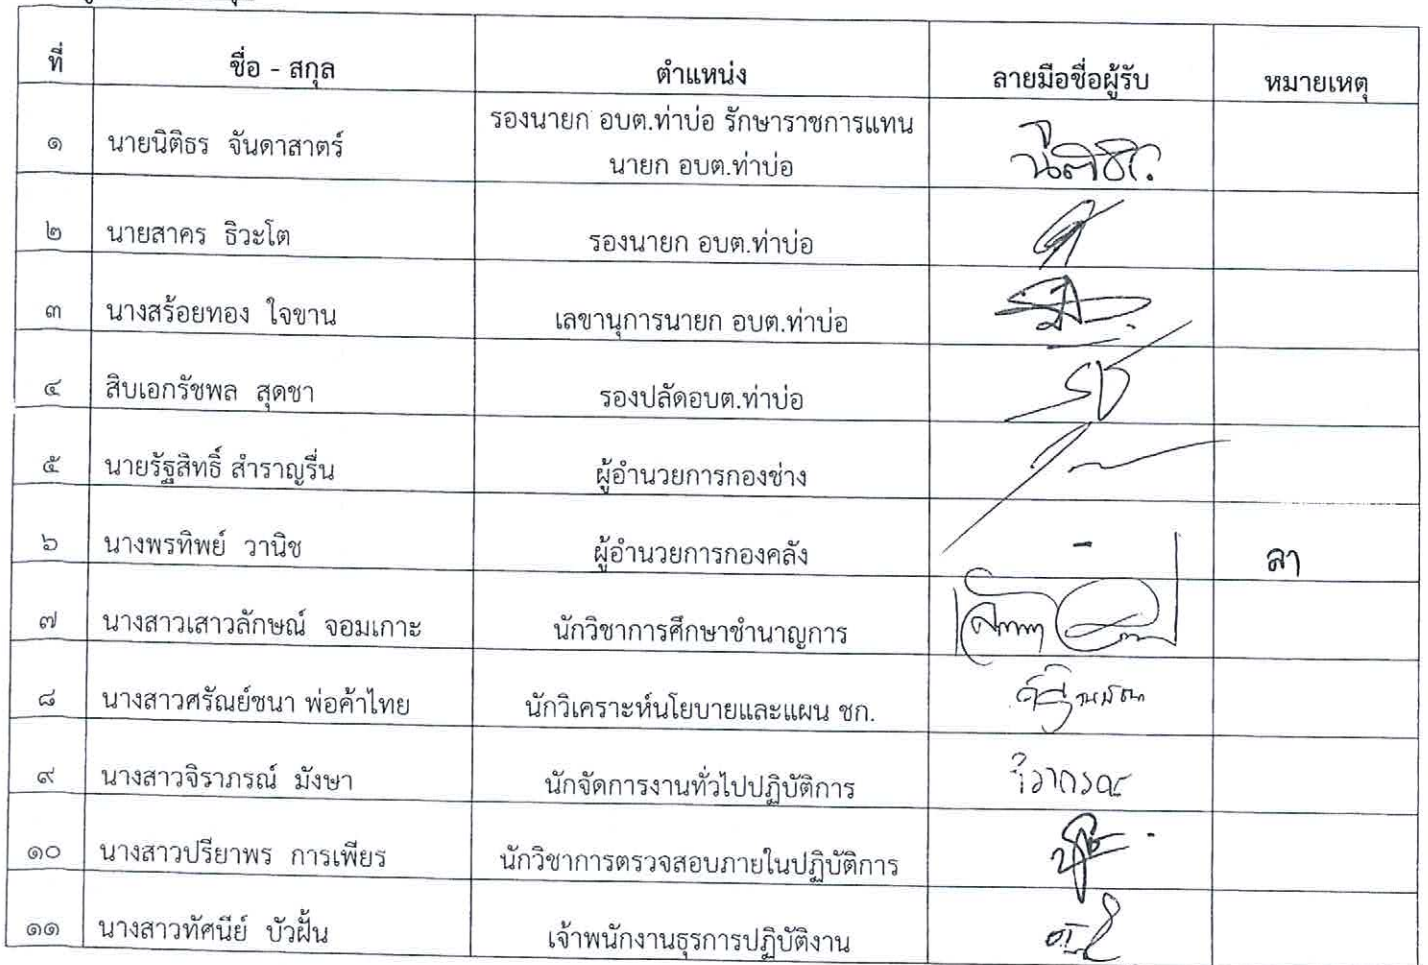 ที่ ชื่อ - สกุล ตำแหน่ง ลายมือชื่อผู้รับ หมายเหตุ
๑ นายนิติธร จันดาสาตร์ รองนายก อบต.ท่าบ่อ รักษาราชการแทน
นายก อบต.ท่าบ่อ
๒ นายสาคร ธิวะโต รองนายก อบต.ท่าบ่อ
๓ นางสร้อยทอง ใจขาน เลขานุการนายก อบต.ท่าบ่อ
๔ สิบเอกรัชพล สุดชา รองปลัดอบต.ท่าบ่อ
๕ นายรัฐสิทธิ์ สำราญรื่น ผู้อำนวยการกองช่าง
๖ นางพรทิพย์ วานิช ผู้อำนวยการกองคลัง - ลา
๗ นางสาวเสาวลักษณ์ จอมเกาะ นักวิชาการศึกษาชำนาญการ
๘ นางสาวศรัณย์ชนา พ่อค้าไทย นักวิเคราะห์นโยบายและแผน ชก.
๙ นางสาวจิราภรณ์ มังษา นักจัดการงานทั่วไปปฏิบัติการ จิราภรณ์
๑๐ นางสาวปรียาพร การเพียร นักวิชาการตรวจสอบภายในปฏิบัติการ
๑๑ นางสาวทัศนีย์ บัวฝั้น เจ้าพนักงานธุรการปฏิบัติงาน